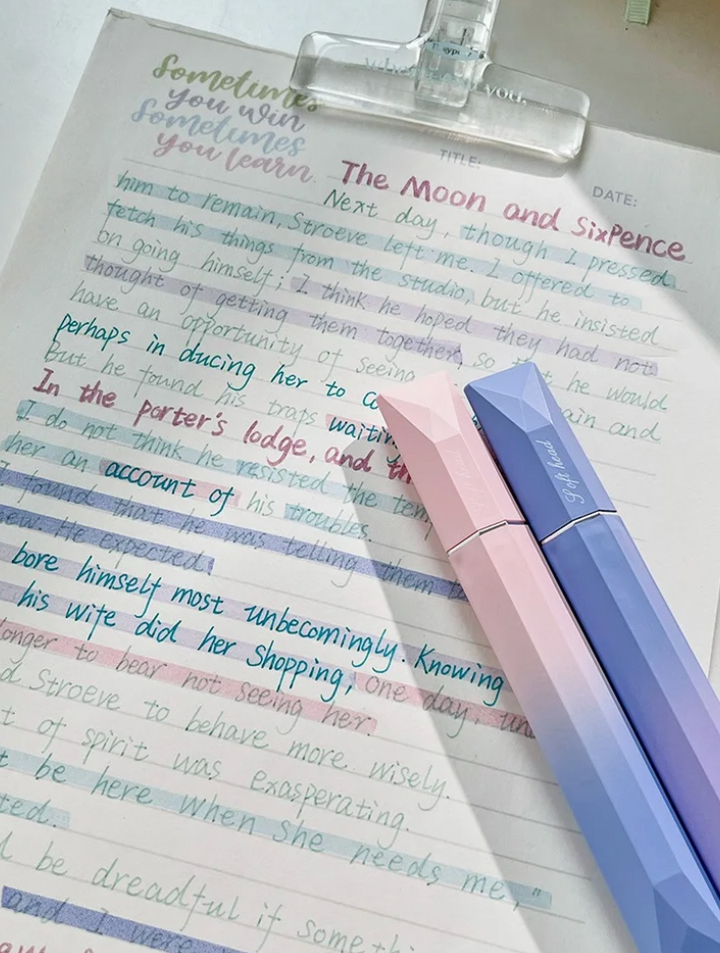 Sometimes
you win
Sometimes
you learn.
you.
TITLE:
DATE:
The Moon and SixPence
Next day, though I pressed
him to remain, Stroeve left me. I offered to
fetch his things from the studio, but he insisted
on going himself; I think he hoped they had not
thought of getting them together, so he would
have an opportunity of seeing ain and
perhaps in ducing her to
But he found his traps waiting
In the porter's lodge, and
I do not think he resisted the
her an account of his troubles.
I found that he was telling them
He expected.
bore himself most unbecomingly. Knowing
his wife did her shopping, one day,
longer to bear not seeing her.
Stroeve to behave more wisely.
of spirit was exasperating.
be here when she needs me,"
be dreadful if
and I were
Soft head